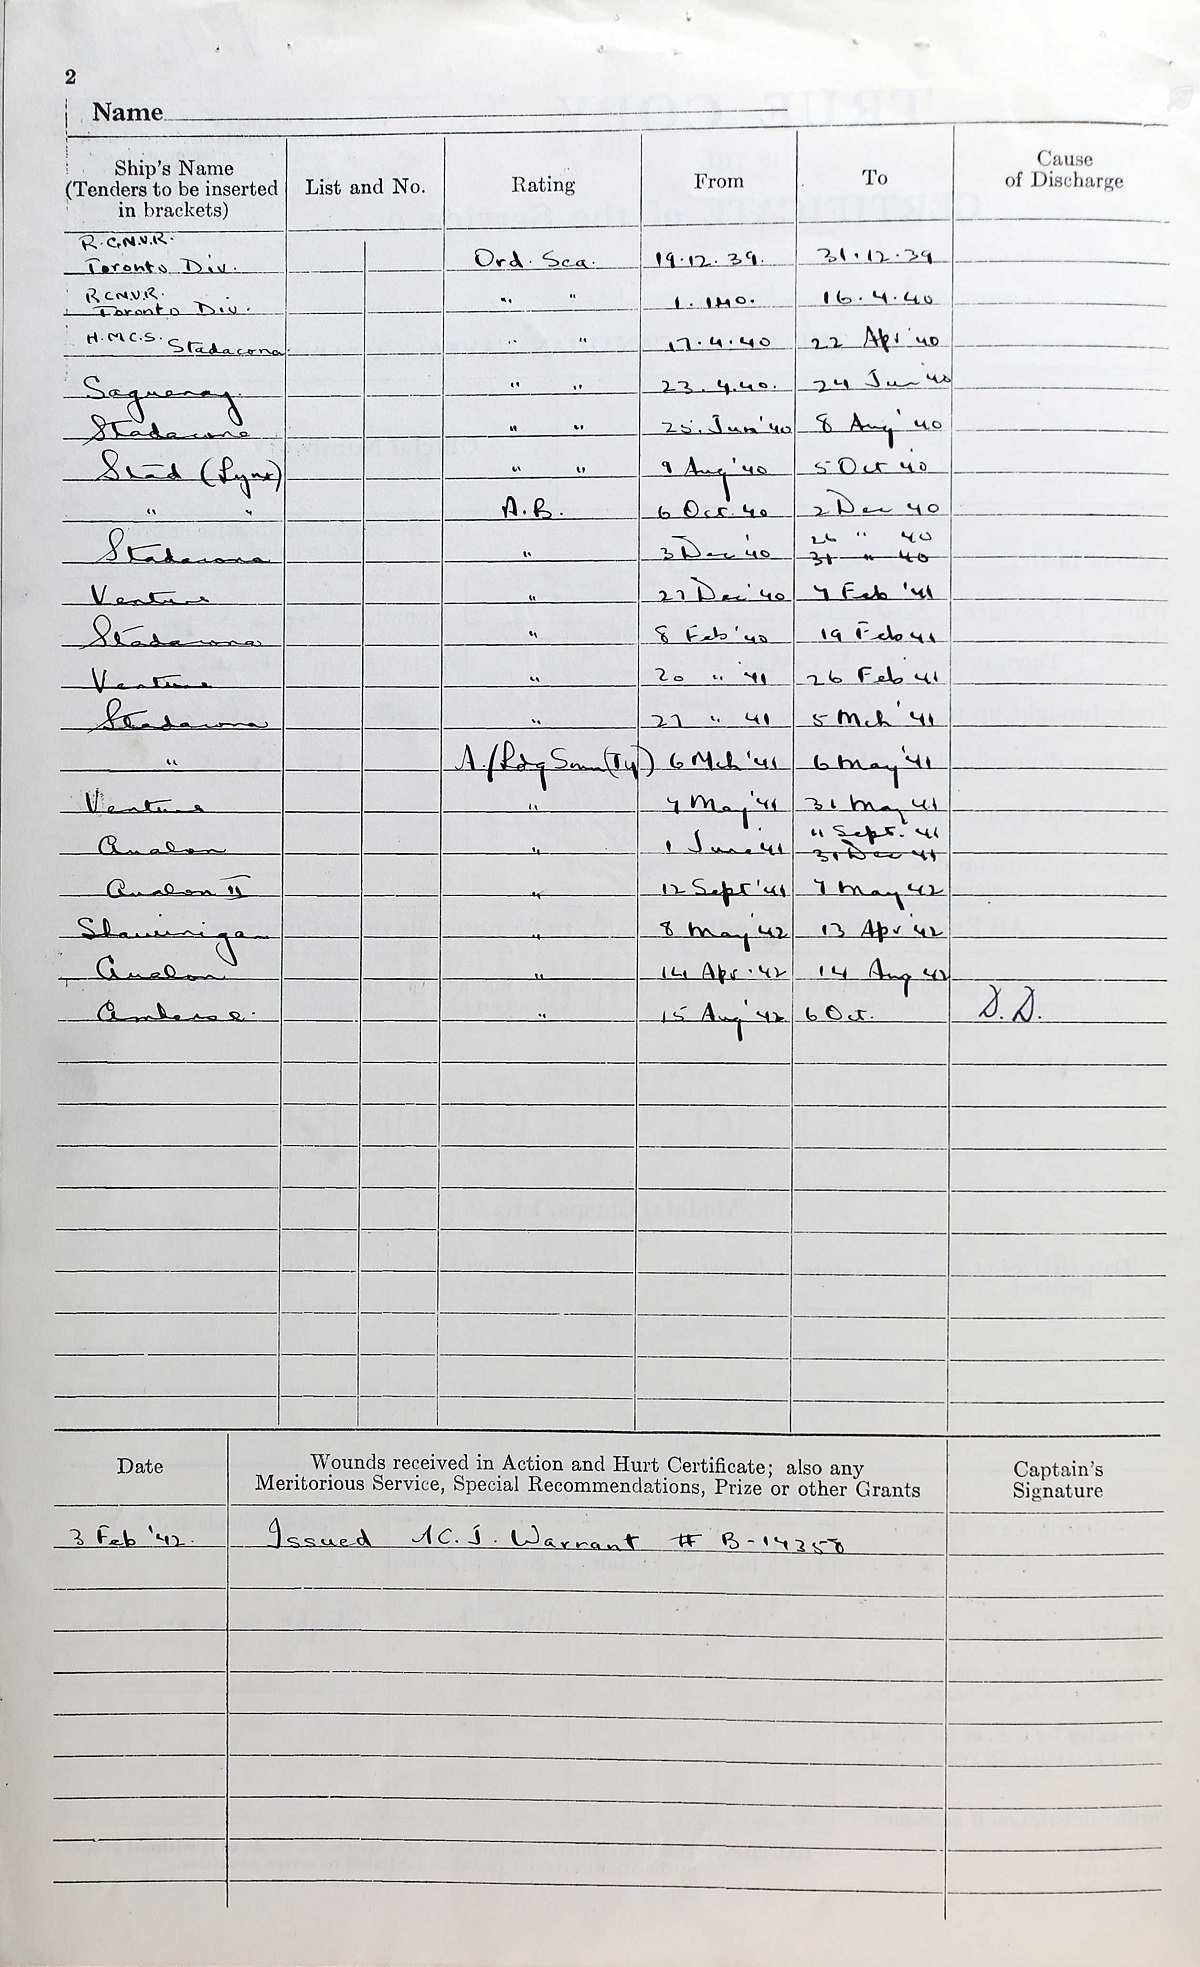 2
Name
Ship's Name
(Tenders to be inserted
in brackets)
List and No.
Rating
From
To
Cause
of Discharge
R.C.N.V.R.
Toronto Div. Ord. Sea. 19.12.39. 31.12.39
R.C.N.V.R.
Toronto Div. " " 1.1.40. 16.4.40
H.M.C.S. Stadacona " " 17.4.40 22 Apr '40
Saguenay " " 23.4.40. 24 Jun '40
Stadacona " " 25 Jun '40 8 Aug '40
Stad (Lynx) " " 9 Aug '40 5 Oct '40
" " A.B. 6 Oct. 40 2 Dec 40
Stadacona " 3 Dec '40 26 " 40
31 " 40
Venture " 27 Dec '40 7 Feb '41
Stadacona " 8 Feb '40 19 Feb 41
Venture " 20 " '41 26 Feb '41
Stadacona " 27 " 41 5 Mch '41
" A./Ldg Smn (Ty) 6 Mch '41 6 May '41
Venture " 7 May '41 31 May 41
Avalon " 1 June '41 11 Sept. '41
31 Dec 41
Avalon II " 12 Sept '41 7 May '42
Shawinigan " 8 May '42 13 Apr '42
Avalon " 14 Apr. 42 14 Aug 42
Ambrose. " 15 Aug '42 6 Oct. D.D.
Date
Wounds received in Action and Hurt Certificate; also any
Meritorious Service, Special Recommendations, Prize or other Grants
Captain's
Signature
3 Feb '42. Issued Warrant # B-14350